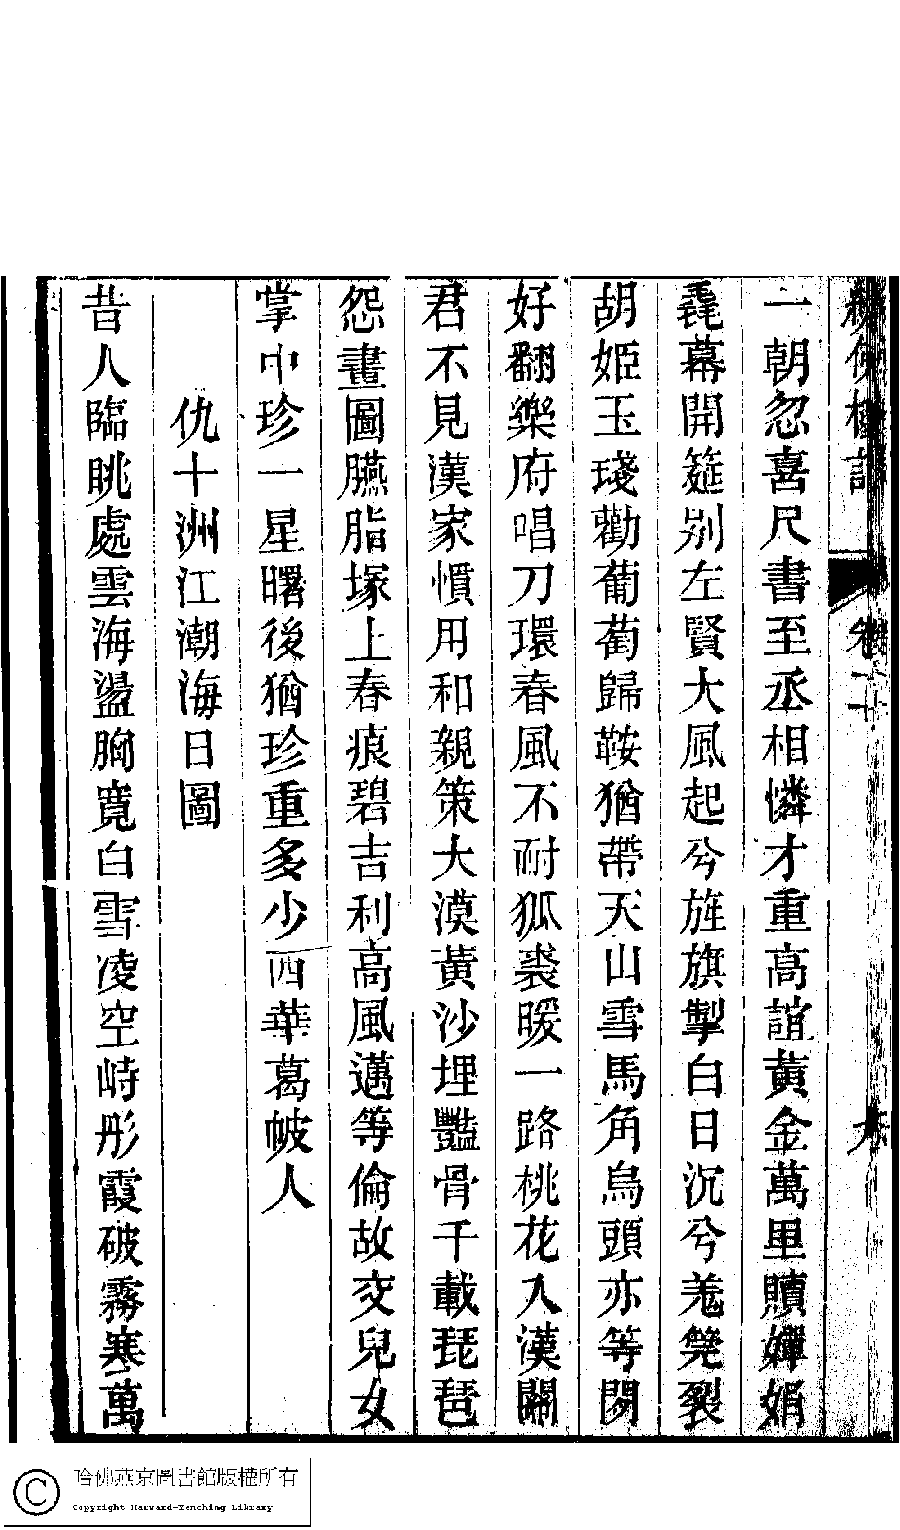 一朝忽喜尺書至丞相憐才重高誼黃金萬里贖嬋娟
毳幕開筵別左賢大風起兮旌旗掣白日沉兮羗筦裂
胡姬玉琖勸葡萄歸鞍猶帶天山雪馬角烏頭亦等閒
好翻樂府唱刀環春風不耐狐裘暖一路桃花入漢關
君不見漢家慣用和親策大漠黃沙埋豔骨千載琵琶
怨畫圖臙脂塚上春痕碧吉利高風邁等倫故交兒女
掌中珍一星曙後猶珍重多少西華葛帔人
仇十洲江潮海日圖
昔人臨眺處雲海盪胸寬白雪凌空峙彤霞破霧寒萬
哈佛燕京圖書館版權所有
Copyright Harvard-Yenching Library